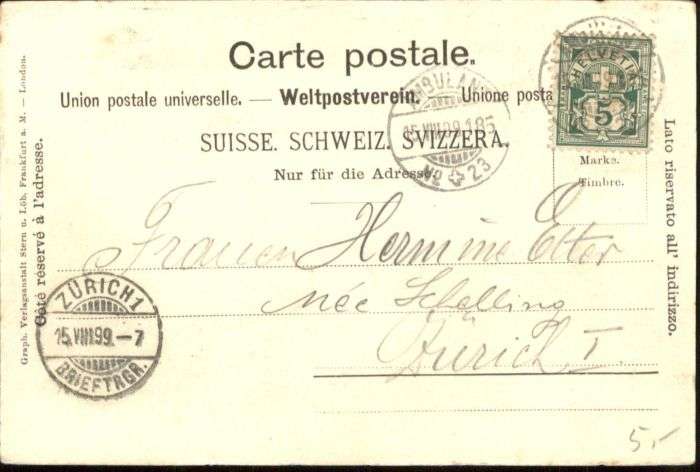 Carte postale.
Union postale universelle. — Weltpostverein. — Unione posta
SUISSE. SCHWEIZ. SVIZZERA.
Nur für die Adresse.
HELVETIA
5
Marke.
Timbre.
AMBULANT
15.VIII.99.185
No 23
Frauen Hermine Etter
née Schelling
Zürich I
ZÜRICH 1
15.VIII.99.-7
BRIEFTRGR.
Côté réservé à l'adresse.
Graph. Verlagsanstalt Stern u. Löb. Frankfurt a. M. — London.
Lato riservato all' indirizzo.
5.-